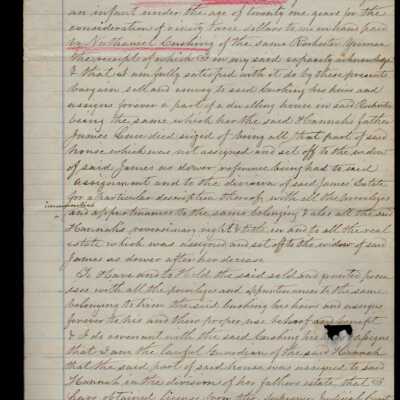 an infant under the age of twenty one years for the
consideration of ninety three dollars to me in hand paid
by Nathaniel Cushing of the same Rochester Yeoman
the receipt of which I in my said capacity acknowledge
& that I am fully satisfied with it do by these presents
bargain sell and convey to said Cushing his heirs and
assigns forever a part of a dwelling house in said Rochester
being the same which her the said Hannahs father
James died seized of being all that part of said
house which was not assigned and set off to the widow
of said James as dower reference being had to said
assignment and to the division of said James Estate
for a particular description thereof, with all the priviledges
immunities
and appurtinances to the same belonging & also all the said
Hannahs reversinary right & title in and to all the real
estate which was assigned and set off to the widow of said
James as dower after her decease
To Have and to Hold the said sold and granted premi
ses with all the privileges and appurtinances to the same
belonging to him the said Cushing his heirs and assigns
forever to his and their proper use behoof and
& I do covenant with the said Cushing his assigns
that I am the lawful Guardian of the said Hannah
that the said part of said house was assigned to said
Hannah in the division of her fathers estate that I
have obtained license from the Supreme Judicial Court